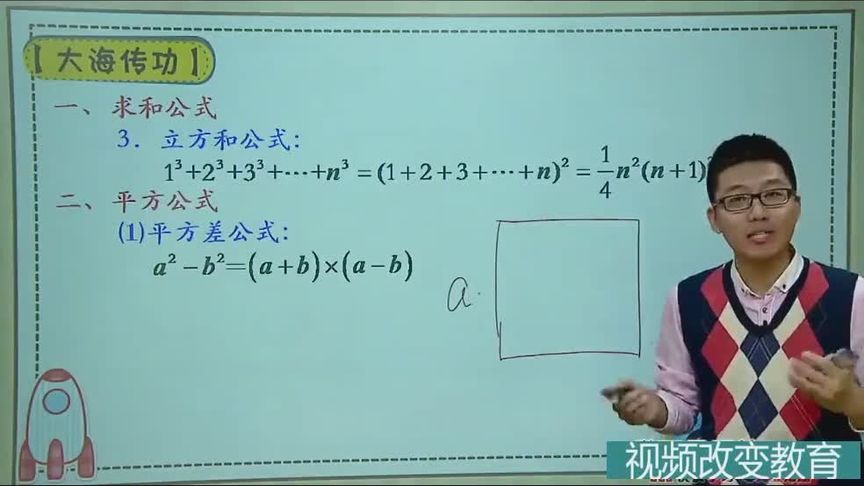 【大海传功】
一、求和公式
3. 立方和公式:
1³+2³+3³+⋯+n³ = (1+2+3+⋯+n)² = 1/4 n²(n+1)
二、平方公式
(1)平方差公式:
a²-b²=(a+b)×(a-b)
a
视频改变教育